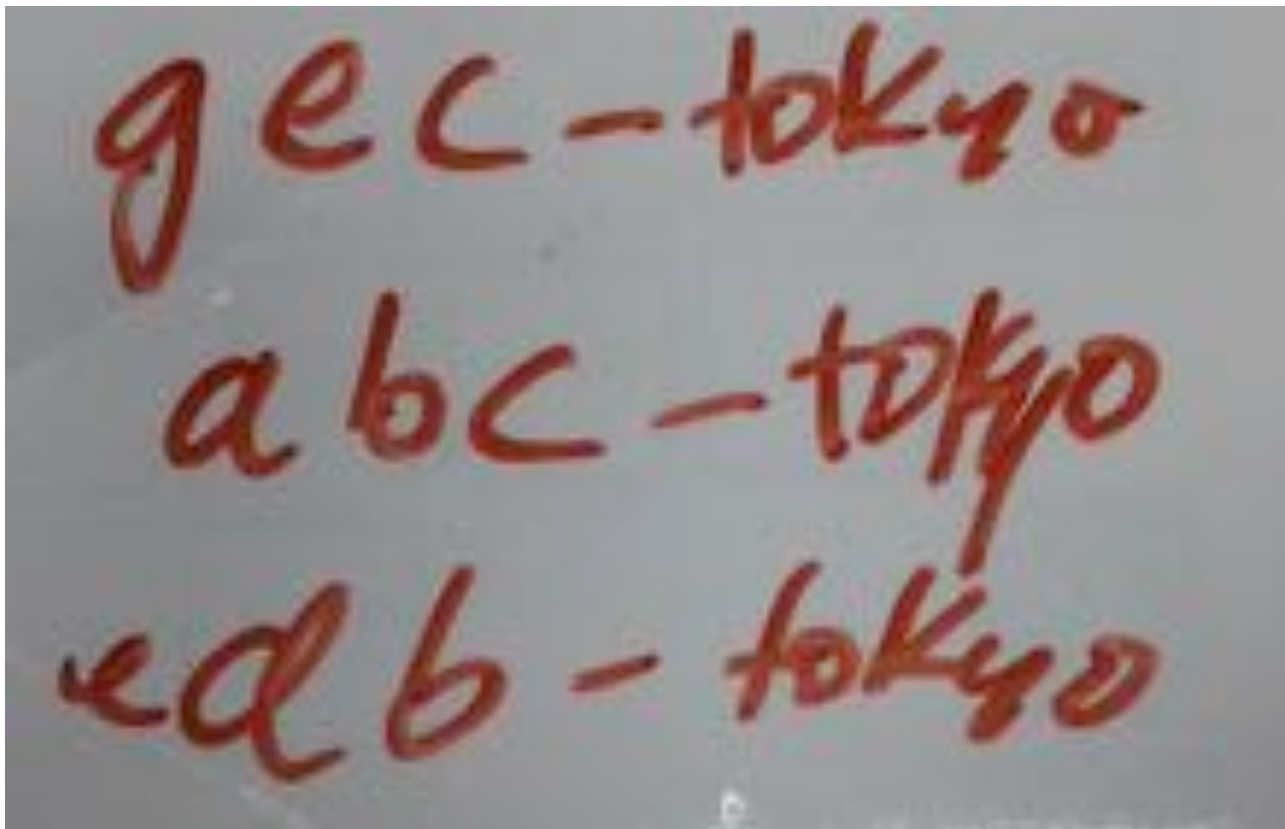 gec - tokyo
abc - tokyo
edb - tokyo